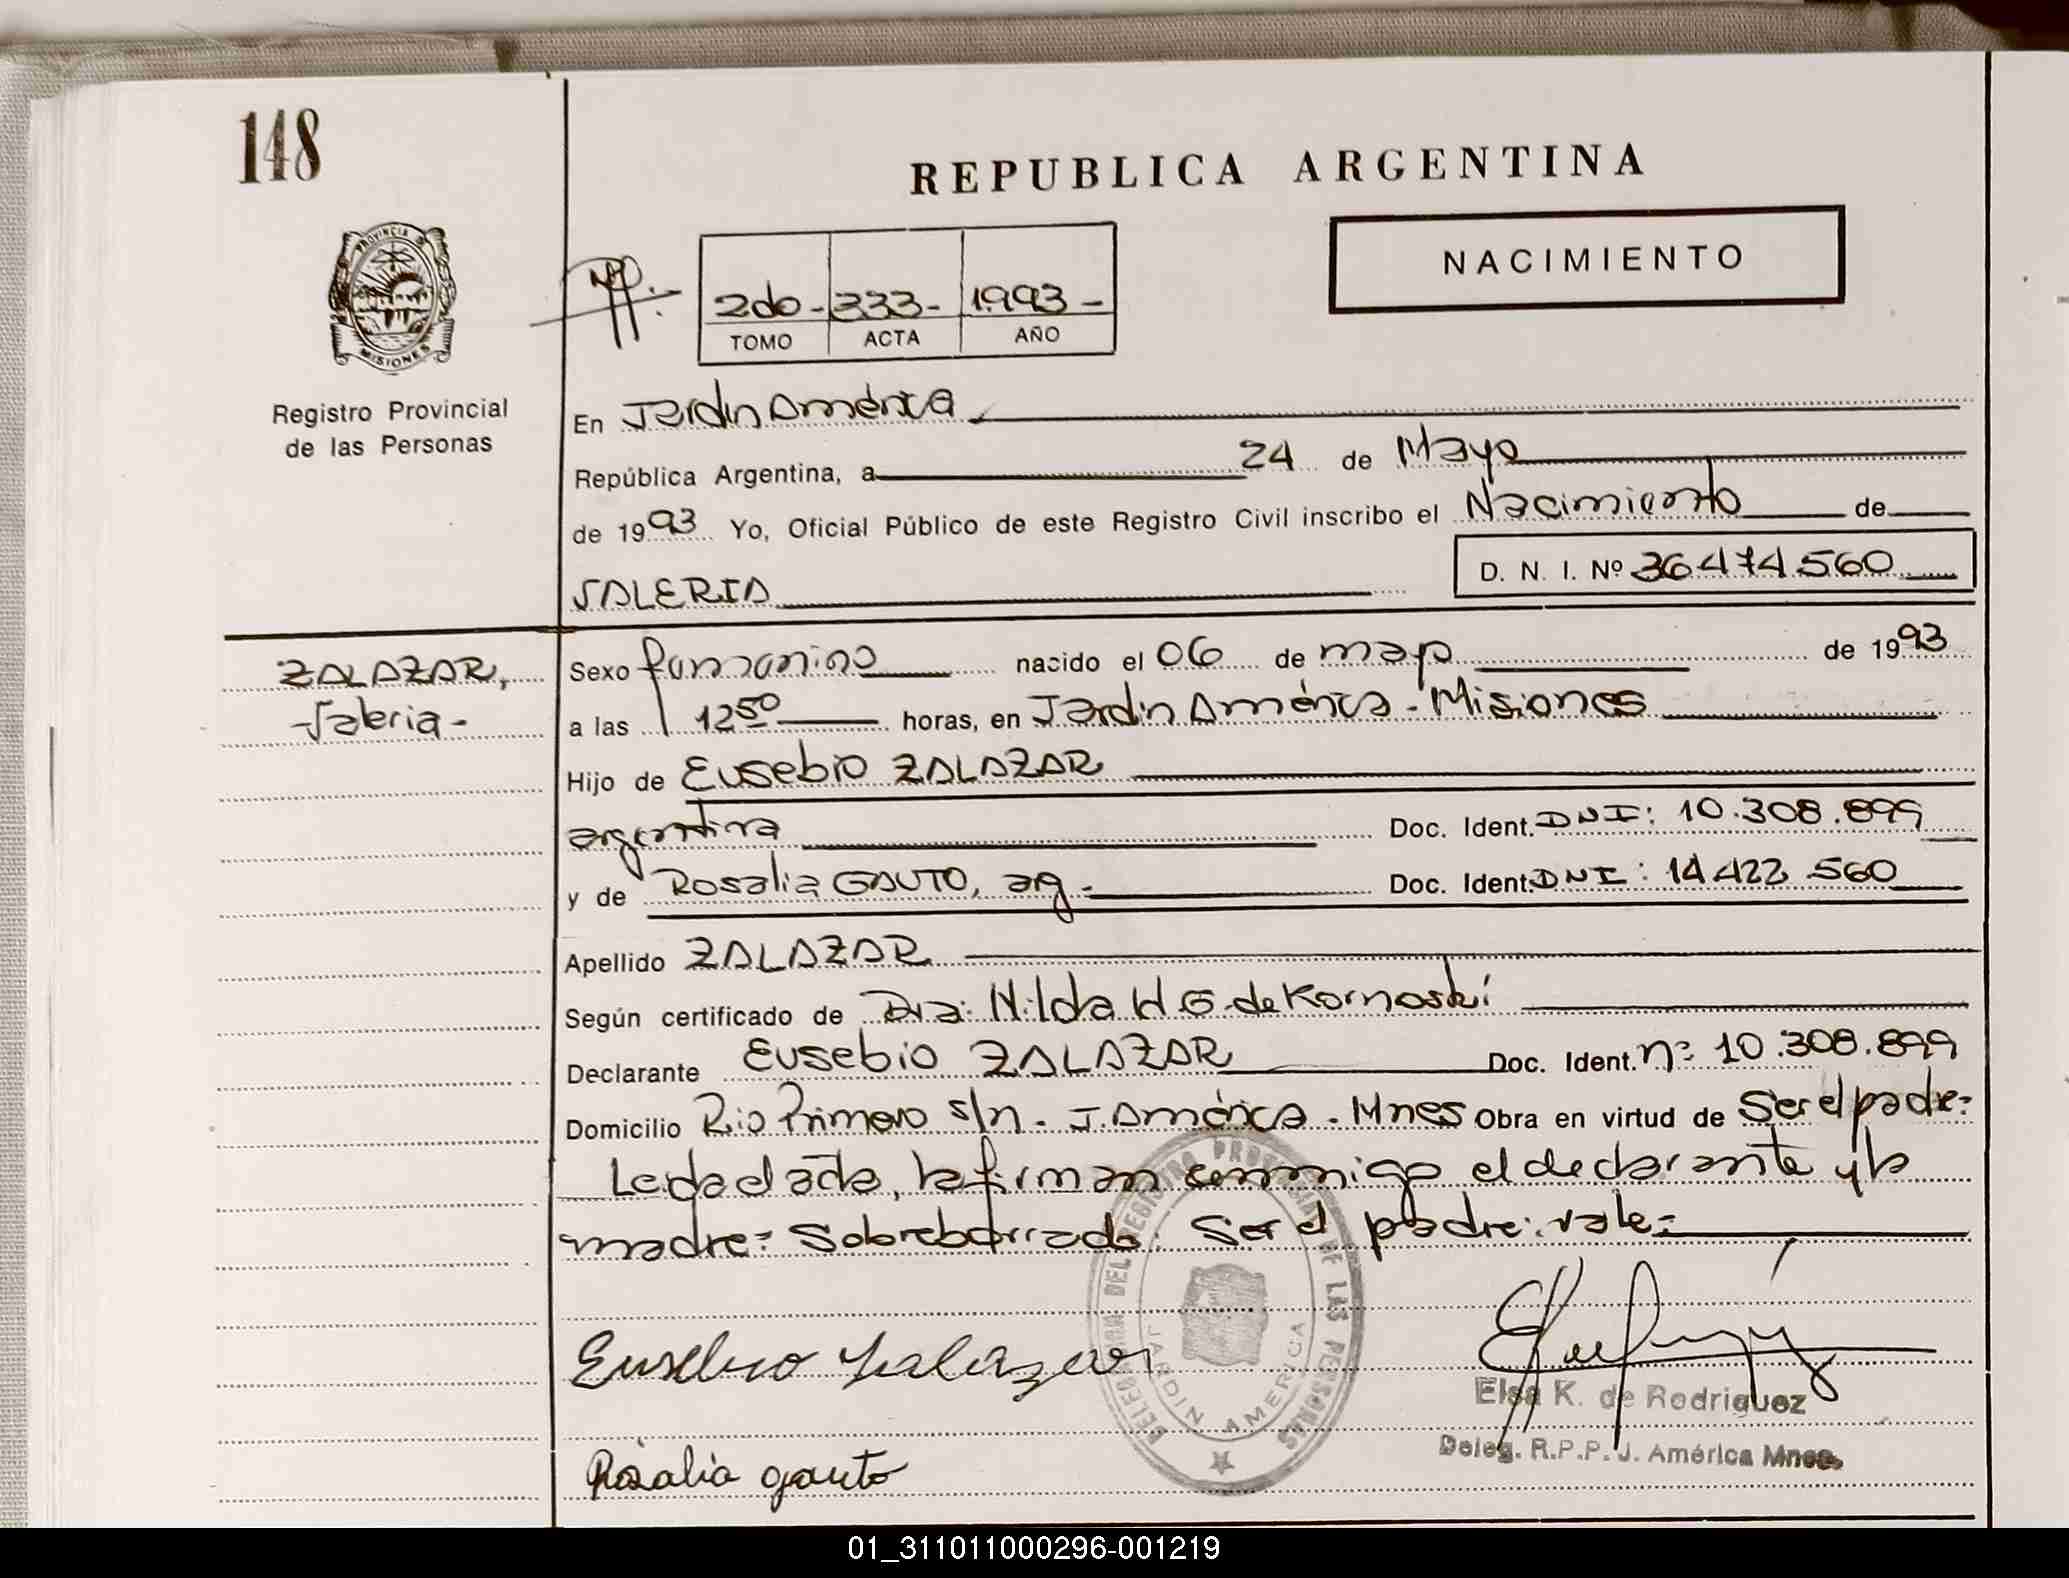 148
REPUBLICA ARGENTINA
PROVINCIA DE
MISIONES
NACIMIENTO
2do - 333 - 1993 -
TOMO ACTA AÑO
Registro Provincial
de las Personas
En Jardín América
República Argentina, a 24 de Mayo
de 1993 Yo, Oficial Público de este Registro Civil inscribo el Nacimiento de
D. N. I. Nº 36.474.560
VALERIA
ZALAZAR,
- Valeria -
Sexo femenino nacido el 06 de mayo de 1993
a las 12 50 horas, en Jardín América - Misiones
Hijo de Eusebio ZALAZAR
argentina Doc. Ident. DNI: 10.308.899
y de Rosalia GAUTO, arg - Doc. Ident. DNI: 14.422.560
Apellido ZALAZAR
Según certificado de Dra: Hilda H G de Kornoski
Declarante Eusebio ZALAZAR Doc. Ident. nº 10.308.899
Domicilio Rio Primero s/n - J. América - Mnes Obra en virtud de Ser el padre:
Leida el acta, la firman conmigo el declarante y la
madre: Sobreborrado: Ser el padre: vale:
DELEGACION DEL REGISTRO PROVINCIAL DE LAS PERSONAS
JARDIN AMERICA
Eusebio Zalazar
Elsa K. de Rodriguez
Deleg. R.P.P. J. América Mnes.
Rosalia gauto
01_311011000296-001219